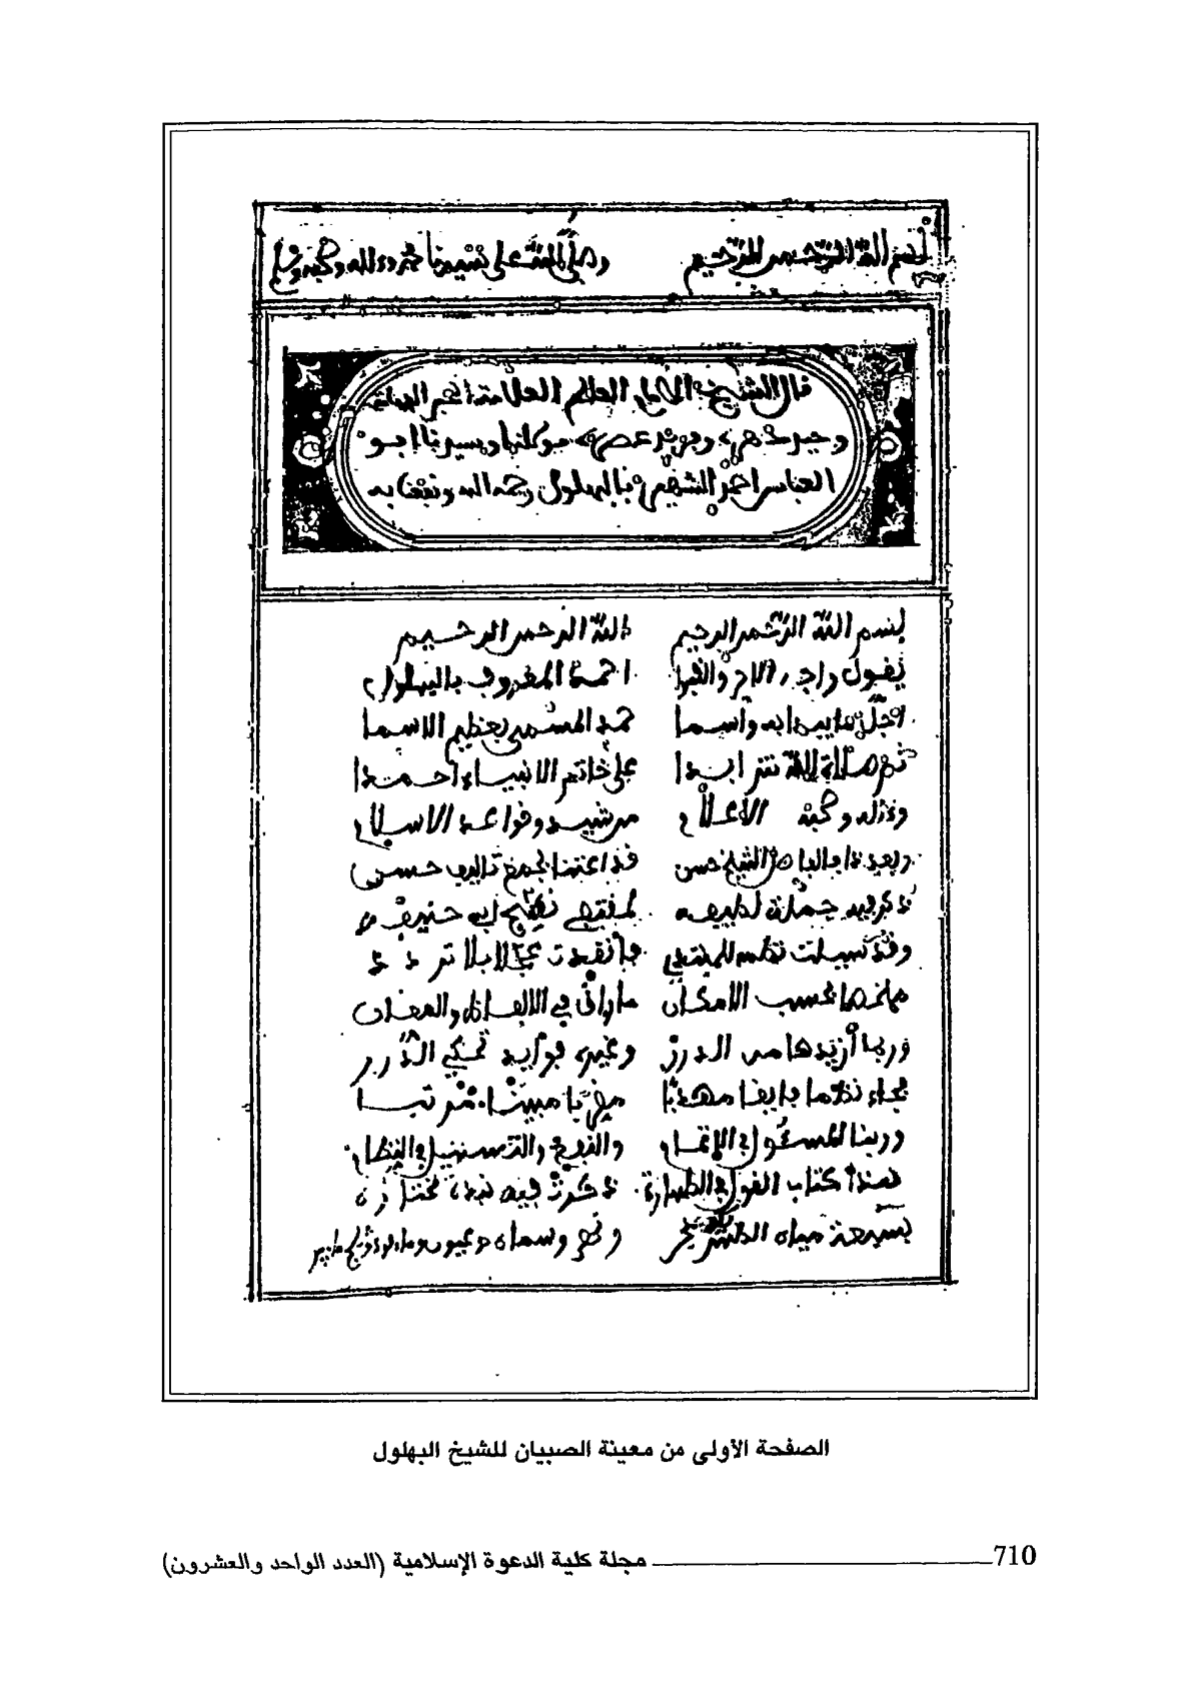 بسم الله الرحمن الرحيم وصلى الله على سيدنا محمد وءاله وصحبه وسلم
قال الشيخ الإمام العالم العلامة الحبر الفهامة
وحيد دهره وفريد عصره مولانا وسيدنا ابو
العباس احمد الشهير بالبهلول رحمه الله ونفعنا به
بسم الله الرحمن الرحيم الله الرحمن الرحيم
يقول راجي الاجر والقبول احمد المعروف بالبهلول
حمد المسمى بعظيم الاسما
ثم صلاة الله تترا ابدا على خاتم الانبياء احمدا
وءاله وصحبه الاعلام مرشيد وقواعد الاسلام
وبعد ذا الشيخ حسن قد اعتنا بجمع تاليف حسن
ذكر فيه جملة لطيفه لمقتفي نهج ابي حنيفه
وقد سيلت نظمه للمبتدي
ملخصا بحسب الامكان ما راق في الالفاظ والمعان
وربما أزيدها من الدرر وغيره فوايد تحكي الدرر
فجاء نظما فايقا مهذبا مقربا مبينا مرتبا
وربنا المسئول في الإتمام والنفع والتسهيل في النظام
هذا كتاب القول في الطهارة ذكرت فيه نبذة مختاره
بسبعة مياه الطهر ونهر وسماء وعيون
الصفحة الأولى من معينة الصبيان للشيخ البهلول
710 مجلة كلية الدعوة الإسلامية (العدد الواحد والعشرون)